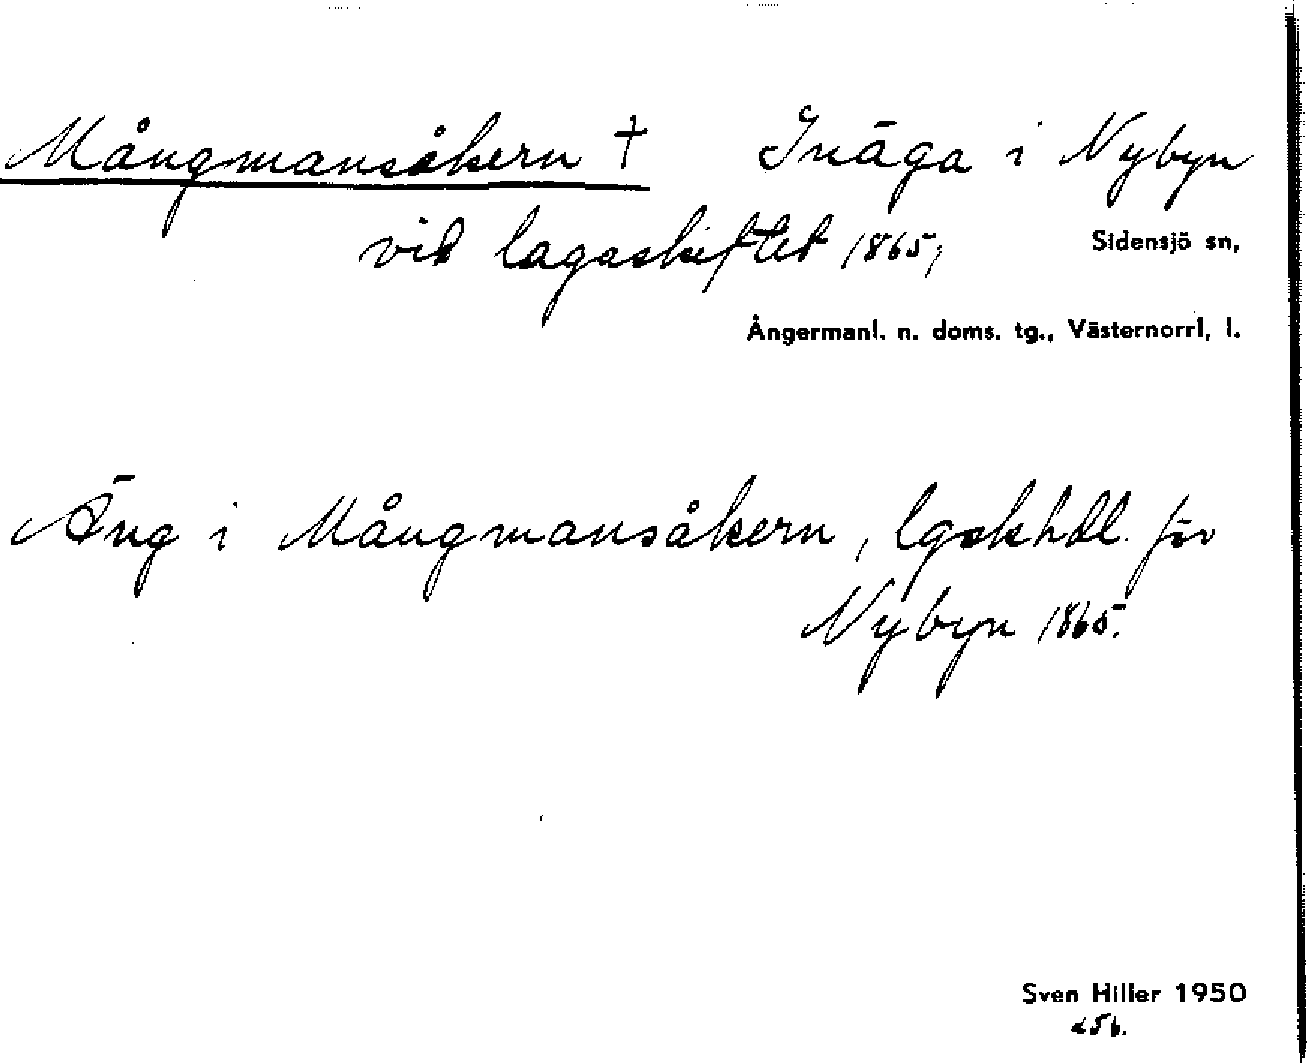 Mångmansåkern † Inäga i Nybyn
vid lagaskiftet 1865,
Sidensjö sn,
Ångermanl. n. doms. tg., Västernorrl. l.
Äng i Mångmansåkern, lgskhdl. för
Nybyn 1865.
Sven Hiller 1950